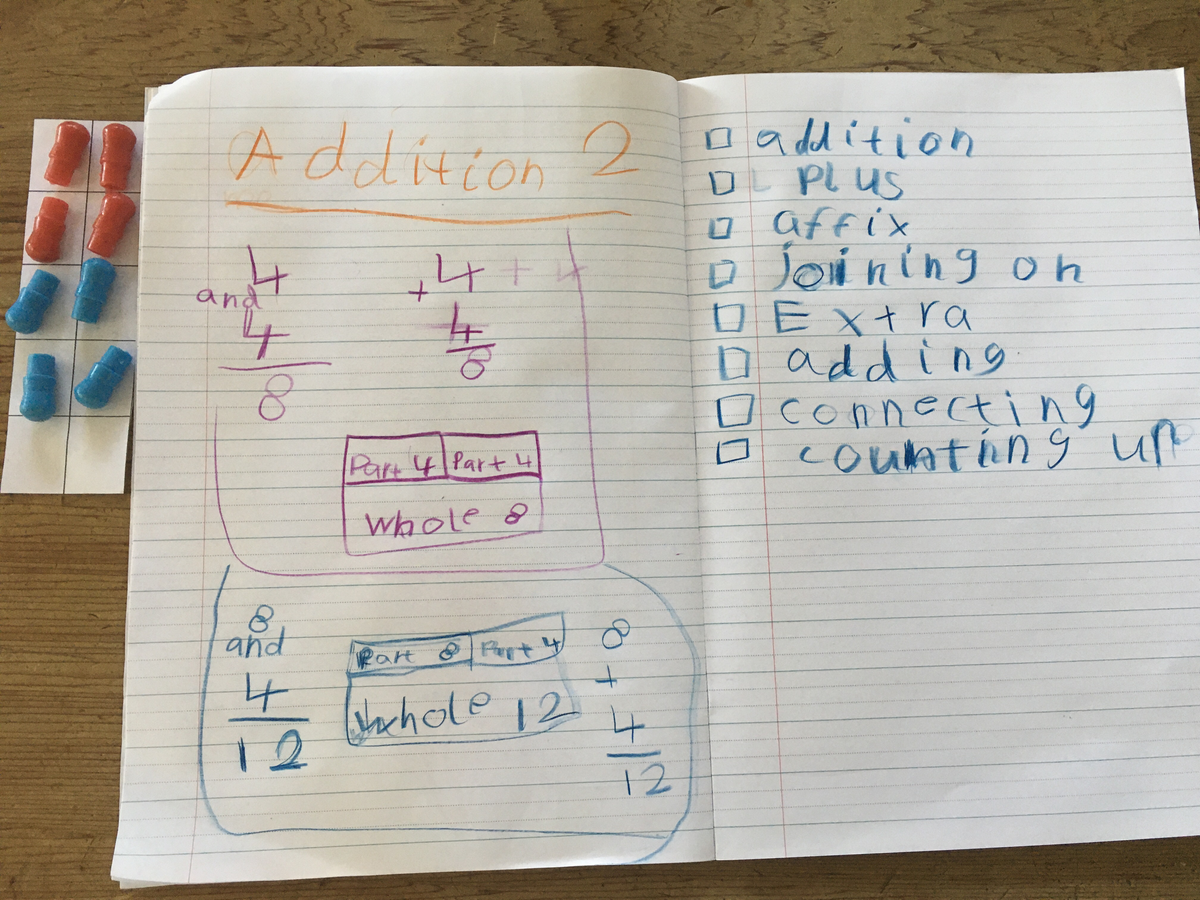 Addition 2
4
and
4
8
+ 4 + 4
4
8
Part 4 Part 4
Whole 8
8
and
4
12
Part 8 Part 4
Whole 12
8
+
4
12
addition
PLUS
affix
joining on
Extra
adding
connecting
counting up